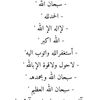 - سبحان الله
- الحمدلله
- لا إله إلا الله
- الله أكبر
- أستغفرالله وأتوب اليه
- لاحول ولاقوة إلا بالله
- سبحان الله وبحمده
- سبحان الله العظيم